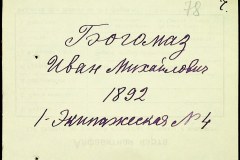 78
Богомаз
Иван Михайлович
1892
1-Экипажеская № 4